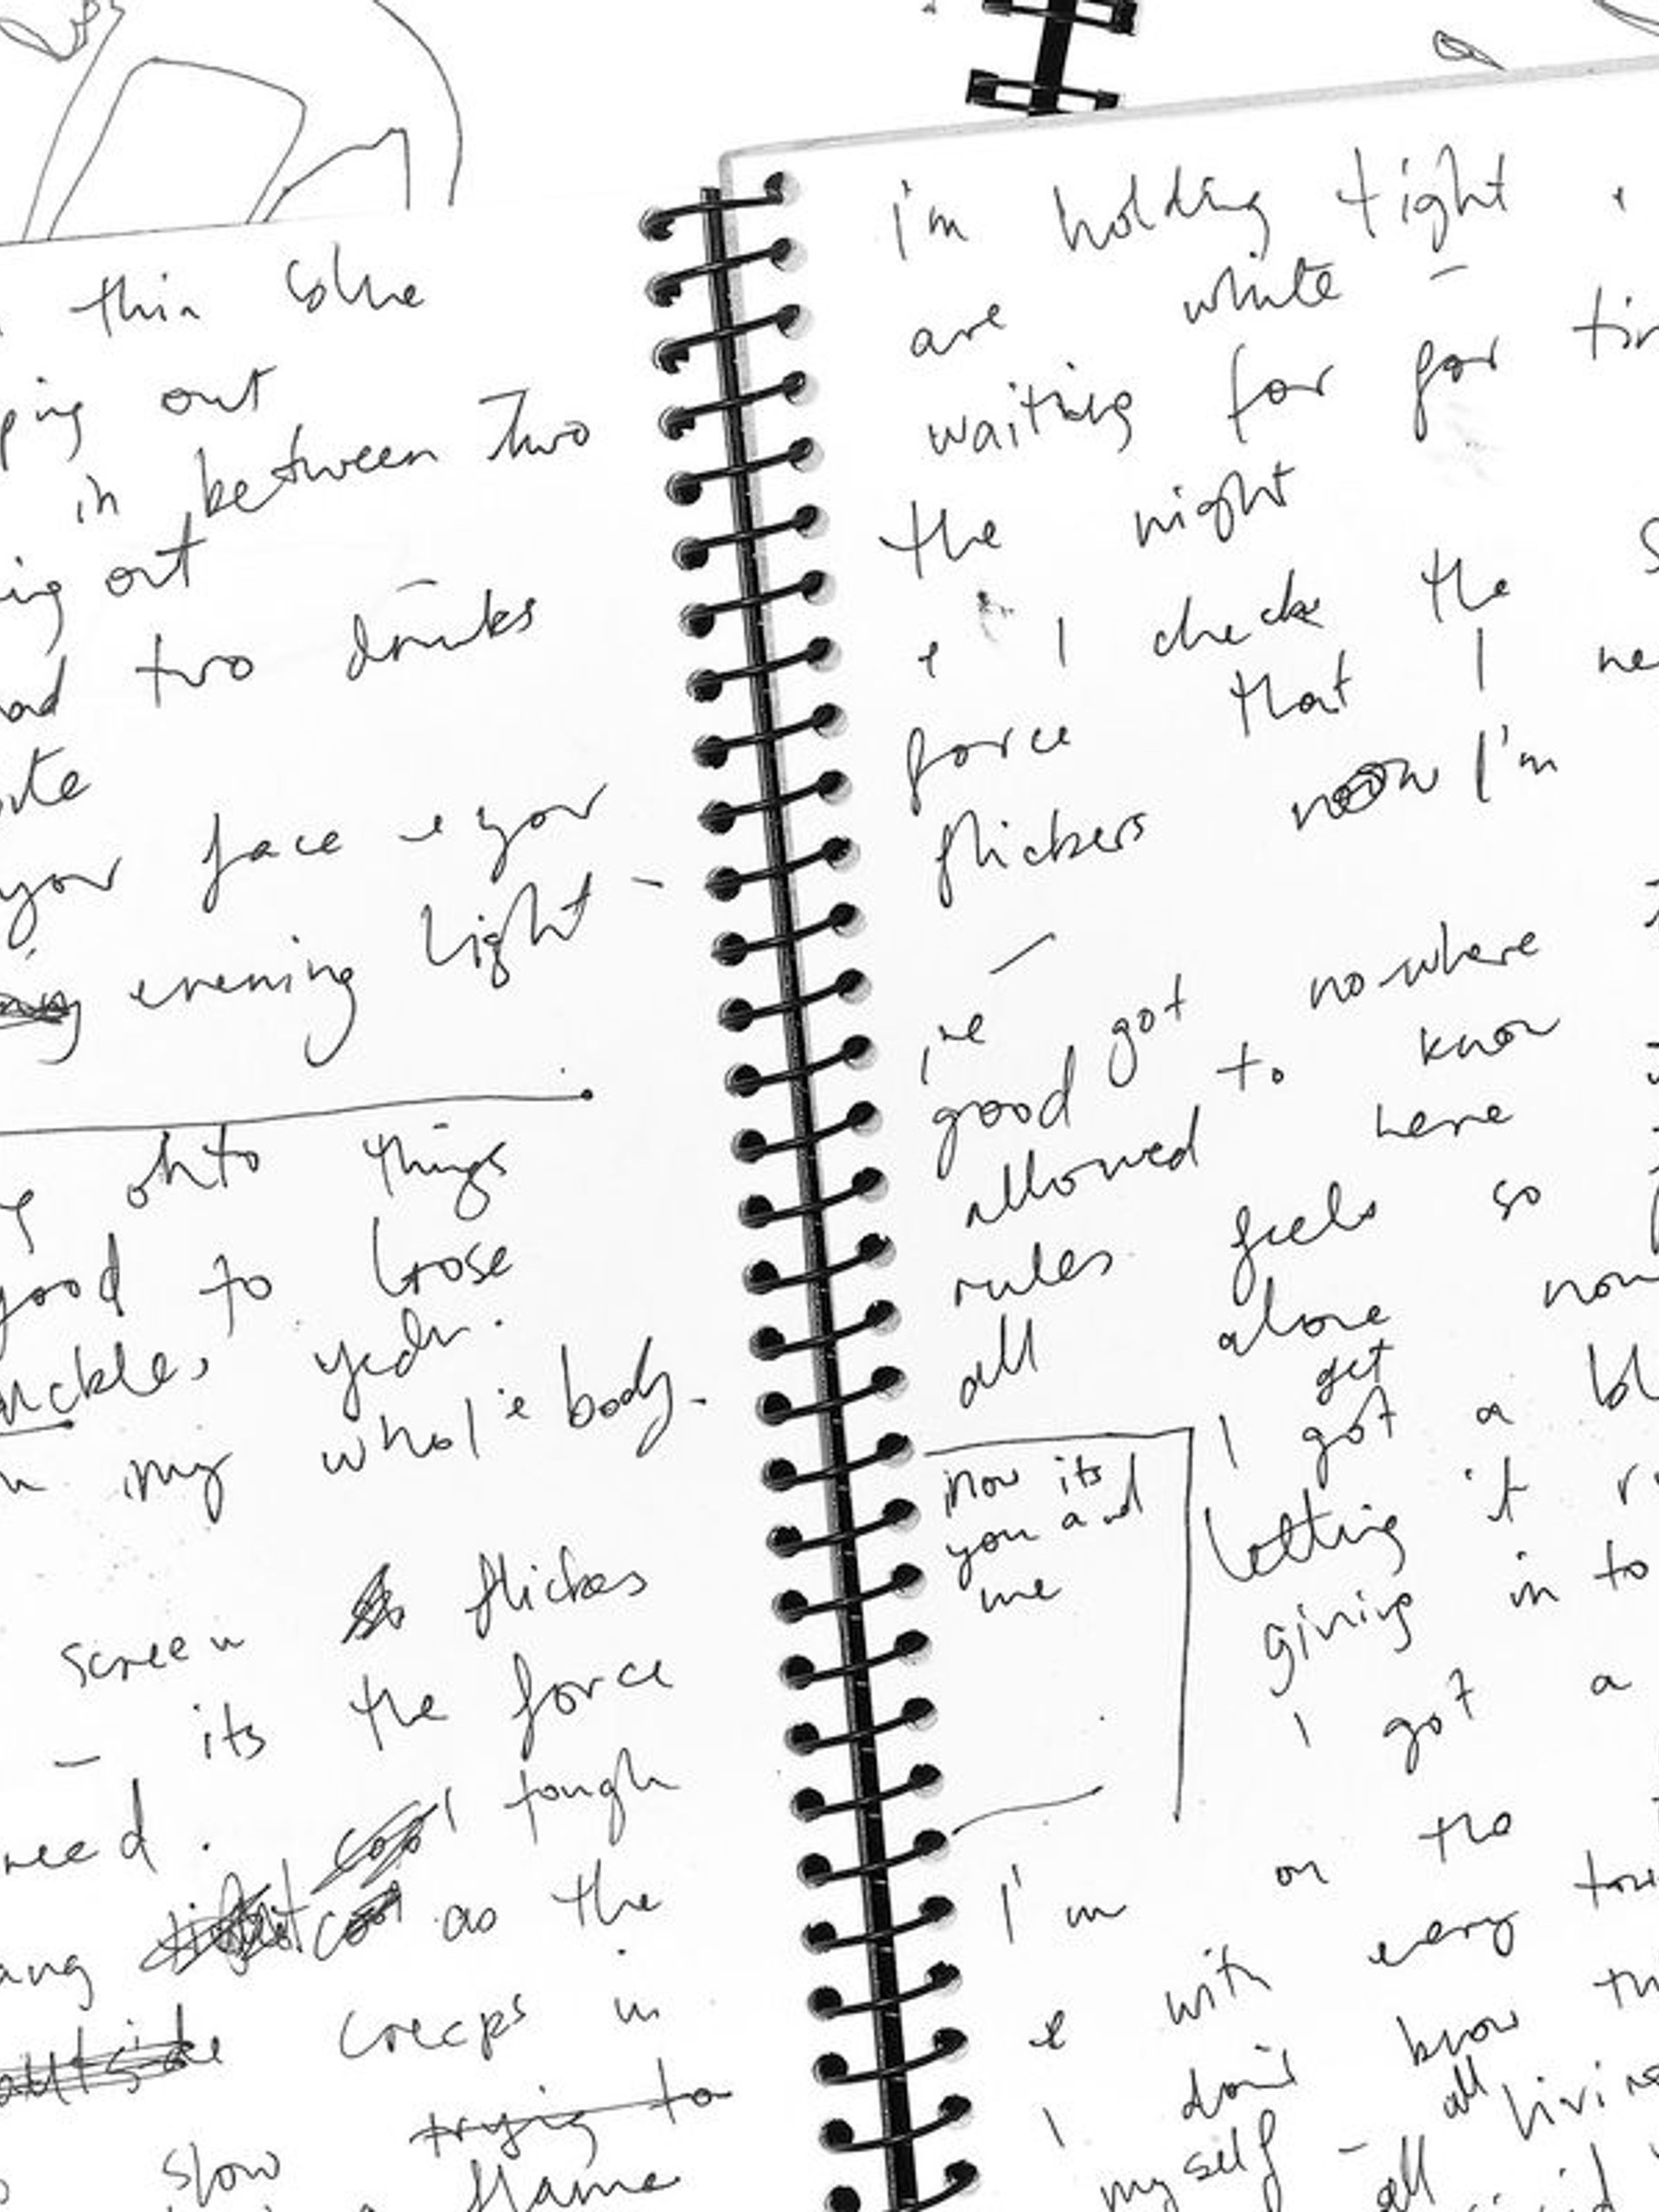 thin blue
ping out
in between Two
ing out
ad two drinks
your face & your
evening light -
onto things
good to loose
uckles yeah.
my whole body.
screen flickes
- its the force
need. cool tough
ang as the
outside creeps in
slow trying to
flame
i'm holding tight &
are white -
waiting for for tim
the night
& I check the s
force that I ne
flickers now I'm
—
i've got nowhere
good to know
allowed here
rules feels so
all alone now
get
I got a bl
now its
you and
me
letting it r
giving in to
I got a
I'm on the
& with every tou
I don't know th
myself - all living
all